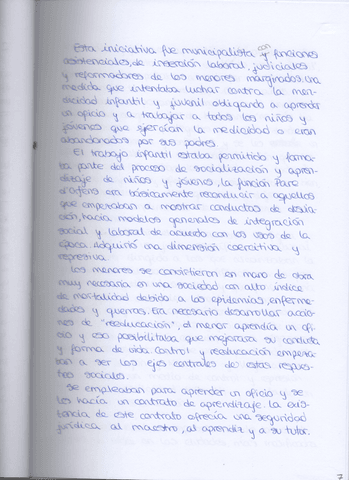 Esta iniciativa fue municipalista con y funciones
asistenciales, de inserción laboral, judiciales
y reformadores de los menores marginados. Una
medida que intentaba luchar contra la men-
dicidad infantil y juvenil obligando a aprender
un oficio y a trabajar a todos los niños y
jóvenes que ejercían la medicidad o eran
abandonados por sus padres.
El trabajo infantil estaba permitido y forma-
ba parte del proceso de socialización y apren-
dizaje de niños y jóvenes, la función Pare
d'Orfens era básicamente reconducir a aquellos
que empezaban a mostrar conductas de desvia-
ción, hacia modelos generales de integración
social y laboral de acuerdo con los usos de la
época. Adquirió una dimensión coercitiva y
represiva.
Los menores se convirtieron en mano de obra
muy necesaria en una sociedad con alto índice
de mortalidad debido a las epidemias, enferme-
dades y guerras. Era necesario desarrollar accio-
nes de "reeducación", el menor aprendía un ofi-
cio y eso posibilitaba que mejorara su conducta
y forma de vida. Control y reeducación empeza-
ban a ser los ejes centrales de estas respues-
tas sociales.
Se empleaban para aprender un oficio y se
les hacía un contrato de aprendizaje. La exis-
tencia de este contrato ofrecía una seguridad
jurídica al maestro, al aprendiz y a su tutor.
7